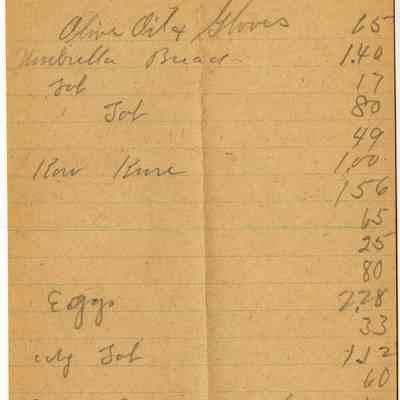 Olive Oil & Gloves 65
Umbrella Bread 1.40
Tob 17
Tob 80
49
Kow Kure 1.00
1.56
65
25
80
Eggs 2.28
33
Tob 1.12
60